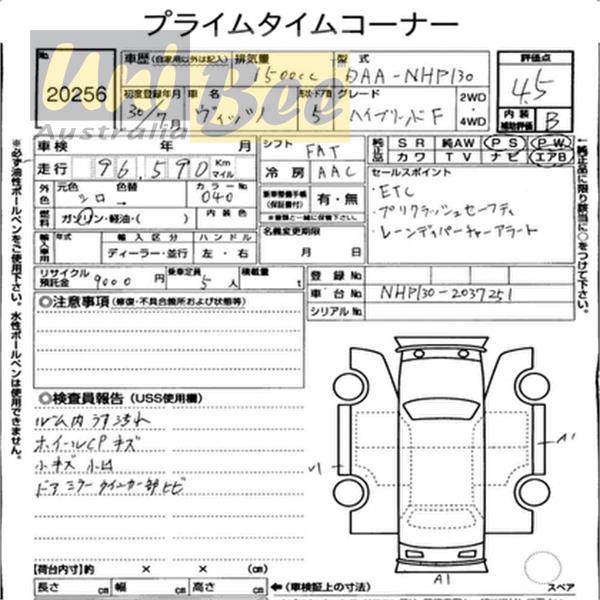 プライムタイムコーナー
No 20256
車歴 (自家用以外は記入) 排気量 型式 評価点
1500cc DAA-NHP130 4.5
初度登録年月 車名 形状・ドア数 グレード 2WD 内装補助評価 B
30/7月 ヴィッツ 5 ハイブリッドF 4WD
Uni Bee
Australia
車検 年 月 シフト FAT 純正品 SR 純AW PS PW
走行 96,590 Km マイル 冷房 AAC カワ TV ナビ エアB
外色 元色 色替 カラーNo 新車整備手帳(保証書付) 有・無 セールスポイント
シロ→ 040 ※書類と一緒に保管して下さい
・ETC
燃料 ガソリン・軽油・( ) 内装色 名義変更期限 ・プリクラッシュセーフティ
輸入車用 年式 輸入区分 ハンドル 月 日 ・レーンディパーチャーアラート
ディーラー・並行 左・右
リサイクル預託金 9000円 乗車定員 5人 積載量 t 登録No
車台No NHP130-2037251
シリアルNo
◎注意事項 (修復・不具合箇所および状態等)
◎検査員報告 (USS使用欄)
ルーム内うす汚れ
ホイールCPキズ
小キズ 小凹
ドアミラーウインカー部ヒビ
A1
A1
【荷台内寸】約 × × (cm) スペア
長さ cm 幅 cm 高さ cm ←(車検証上の寸法)
※必ず油性ボールペンをご使用下さい。水性ボールペンは使用できません。
←純正品に限り該当に○をつけて下さい。